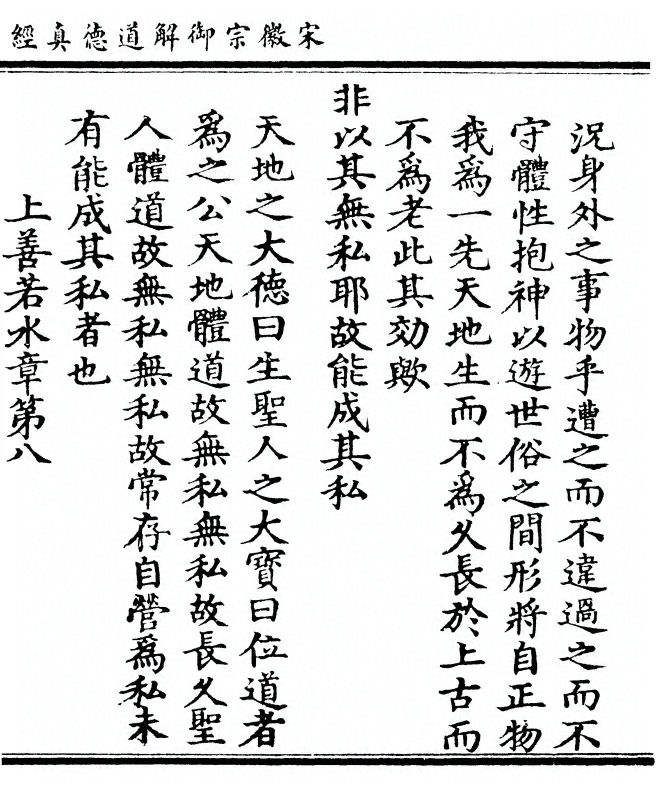 宋徽宗御解道德真經
況身外之事物乎遭之而不違過之而不
守體性抱神以遊世俗之間形將自正物
我為一先天地生而不為久長於上古而
不為老此其効歟
非以其無私耶故能成其私
天地之大德曰生聖人之大寶曰位道者
為之公天地體道故無私無私故長久聖
人體道故無私無私故常存自營為私未
有能成其私者也
上善若水章第八